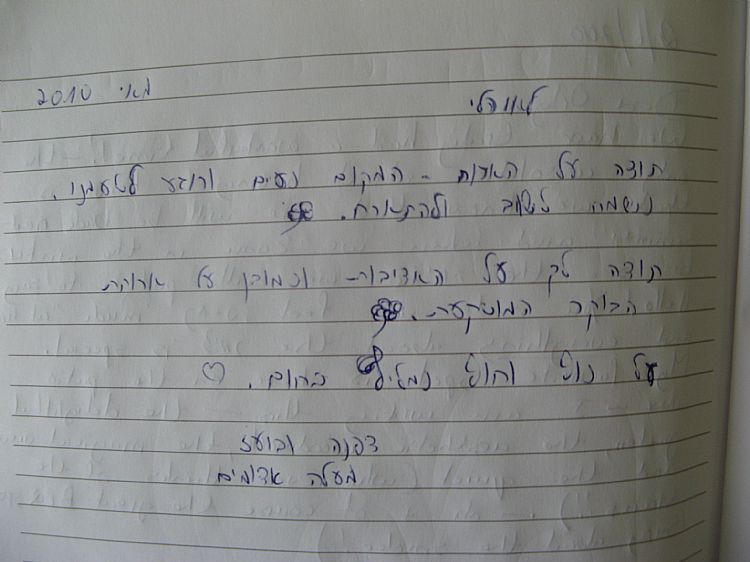 מאי 2010
תודה על האירוח - המקום נעים ורוגע לטעמנו.
נשמח לשוב ולהתארח.
תודה לך על האדיבות וכמובן על ארוחת
הבוקר המושקעת.
על נוף וחוף נמליץ בחום. ♡
דפנה ובועז
מעלה אדומים